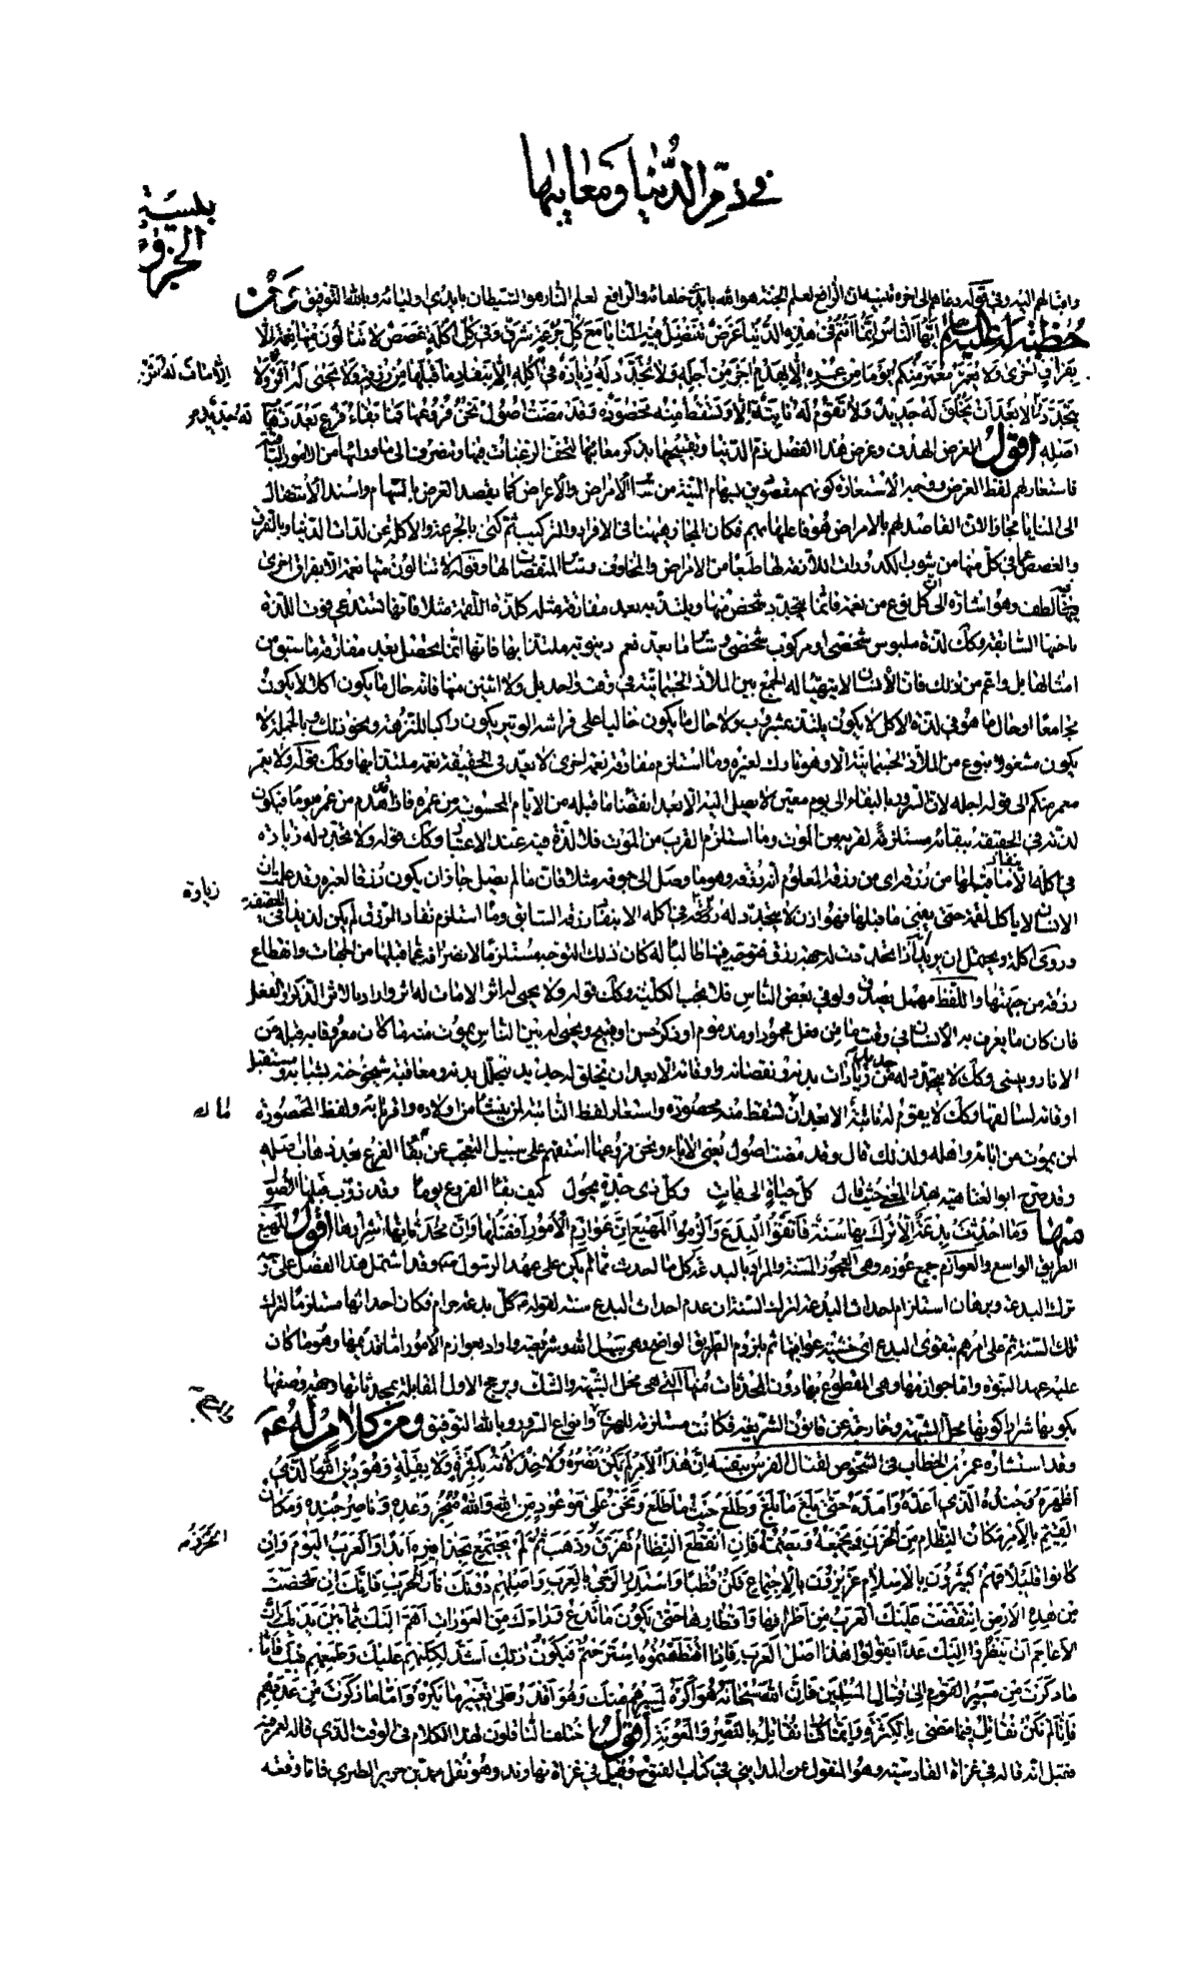 في ذمّ الدُّنيا ومعايبها
واقبالهم اليه وفي قوله دعاهم الى اخره تنبيه ان الرافع لعلم الجنة هو الله بايدي خلفائه والرافع لعلم النار هو الشيطان بايدي اوليائه وبالله التوفيق ومن
خطبة له عليه السلام ايّها النّاس انّما انتم في هذه الدّنيا غرض تنتضل فيه المنايا مع كلّ جرعة شرق وفي كلّ اكلة غصص لا تنالون منها نعمة الّا
بفراق اخرى ولا يعمّر معمّر منكم يوما من عمره الّا بهدم اخر من اجله ولا تجدّد له زيادة في اكله الّا بنفاد ما قبلها من رزقه ولا يحيى له اثر الّا
الا مات له اثر
يتجدّد له جديد الا بعد ان يخلق له جديد ولا تقوم له نابتة الّا وتسقط منه محصودة وقد مضت اصول نحن فروعها فما بقاء فرع بعد ذهاب
له جديد
اصله اقول الغرض الهدف وغرض هذا الفصل ذمّ الدنيا وتقبيحها بذكر معايبها لتخفّ الرغبات فيها وتنصرف الى ما وراءها من الامور الباقية
فاستعار لهم لفظ الغرض ووجه الاستعارة كونهم مقصودين بسهام المنيّة من سائر الامراض والاعراض كما يقصد الغرض بالسهام واسند الانتضال
الى المنايا مجازا لان القاصد لهم بالامراض هو فاعلها بهم فكان المجاز ههنا في الافراد والتركيب ثمّ كنى بالجرعة والاكلة عن لذات الدنيا وبالشرق
والغصص عمّا في كلّ منها من شوب الكدورات اللازمة لها طبعا من الامراض والمخاوف وسائر المنغّصات لها وقوله لا تنالون منها نعمة الا بفراق اخرى
فيه لطف وهو اشارة الى ان كل نوع من نعمة فانّما يتجدّد شخص منها ويلتذّ به بعد مفارقة مثله كلذة اللقمة مثلا فانها تستدعي فوت اللذة
باختها السابقة وكذلك لذة ملبوس شخصي او مركوب شخصي وسائر ما يعد نعم دنيوية ملتذا بها فانها انّما تحصل بعد مفارقة ما سبق من
امثالها بل واعم من ذلك فان الانسان لا يتهيّأ له الجمع بين الملاذ الجسمانيّة في وقت واحد بل ولا اثنين منها فانه حال ما يكون اكلا لا يكون
مجامعا او حال ما هو في لذة الاكل لا يكون يلتذ بمشروب ولا حال ما يكون خاليا على فراشه الوثير يكون راكبا للنزهة ونحو ذلك وبالجملة لا
يكون مشغولا بنوع من الملاذ الجسمانيّة الا وهو تارك لغيره وما استلزم مفارقة نعمة اخرى لا يعد في الحقيقة نعمة ملتذا بها وكذلك قوله ولا يعمر
معمر منكم الى قوله اجله لان السرور بالبقاء الى يوم معين لا يصل اليه الا بعد انقضاء ما قبله من الايام المحسوبة من عمره فاذا هدم من عمره يوما فيكون
لذته في الحقيقة ببقائه مستلزمة لقربه من الموت وما استلزم القرب من الموت فلا لذة فيه عند الاعتبار وكذلك قوله ولا تجدد له زيادة
في اكله الا بنفاد ما قبلها من رزقه اى من رزقه المعلوم انه رزقه وهو ما وصل الى جوفه مثلا فان ما لم يصل جاز ان يكون رزقا لغيره وقد علمت ان
الانسان لا ياكل لقمة حتى يفنى ما قبلها فهو اذن لا يتجدد له زيادة في اكله الا بنفاد رزقه السابق وما استلزم نفاد الرزق لم يكن لذيذا في الحقيقة
زيادة
وروى اكلة ويحتمل ان يريد انه اذا تجددت له جهة رزق فتوجه فيها طالبا له كان ذلك التوجه مستلزما لانصرافه عما قبلها من الجهات وانقطاع
رزقه من جهتها واللفظ مهمل يصدق ولو في بعض الناس فلا يجب الكلية وكذلك قوله ولا يحيى له اثر الا مات له اثر واراد بالاثر الذكر والفعل
فان كان ما يعرف به الانسان في وقت ما من فعل محمود او مذموم او ذكر حسن او قبيح ويحيى له بين الناس يموت منه ما كان معروفا به قبله من
الاثار وينسى وكذلك لا يتجدد له جديد من زيادات بدنه ونقصانه واوقاته الا بعد ان يخلق له جديد بتحلل بدنه ومعاقبة شيخوخته بشبابه ومستقبل
اوقاته لسالفها وكذلك لا يقوم له نابتة الا بعد ان تسقط منه محصودة واستعار لفظ النابتة لمن ينشأ من اولاده واقربائه ولفظ المحصودة
لمن يموت من ابائه واهله ولذلك قال وقد مضت اصول يعنى الاباء ونحن فروعها استفهم على سبيل التعجب عن بقاء الفرع بعد ذهاب اصله
وقد صرح ابو العتاهية بهذا المعنى حيث قال كل حياة الى ممات وكل ذي جدة يحول كيف بقاء الفروع يوما وقد ذوّت قبلها الاصول
منها وما احدثت بدعة الّا ترك بها سنّة فاتّقوا البدع والزموا المهيع انّ عوازم الامور افضلها وانّ محدثاتها شرارها اقول المهيع
الطريق الواسع والعوازم جمع عوزم وهى العجوز المسنة والمراد بالبدعة كل ما احدث مما لم يكن على عهد الرسول وقد اشتمل هذا الفصل على وجه
ترك البدعة وبرهان استلزام احداث البدعة لترك السنة ان عدم احداث البدع سنة لقوله كل بدعة حرام فكان احداثها مستلزما لترك
تلك السنة ثم على امرهم بتقوى البدع اى خشية عواقبها ثم بلزوم الطريق الواضح وهى سبيل الله وشريعته واراد بعوازم الامور اما قديمها وهو ما كان
عليه عهد النبوة واما جوازمها وهى المقطوع بها دون المحدثات منها التي هى محل الشبهة والشك ويرجح الاول المقابلة بمحدثاتها وجهة وصفها
بكونها شرارا كونها محل الشبهة وخارجة عن قانون الشريعة فكانت مستلزمة للهرج وانواع الشرور وبالله التوفيق ومن كلام له عم
وقد استشاره عمر بن الخطاب في الشخوص لقتال الفرس بنفسه انّ هذا الامر لم يكن نصره ولا خذلانه بكثرة ولا بقلّة وهو دين الله الّذي
اظهره وجنده الّذي اعدّه وامدّه حتّى بلغ ما بلغ وطلع حيث ما طلع ونحن على موعود من الله والله منجز وعده وناصر جنده ومكان
القيّم بالامر مكان النظام من الخرز يجمعه ويضمّه فان انقطع النظام تفرّق وذهب ثمّ لم يجتمع بحذافيره ابدا والعرب اليوم وان
كانوا قليلا فهم كثيرون بالاسلام عزيزون بالاجتماع فكن قطبا واستدر الرّحى بالعرب واصلهم دونك نار الحرب فانّك ان شخصت
من هذه الارض انتقضت عليك العرب من اطرافها واقطارها حتّى يكون ما تدع وراءك من العورات اهمّ اليك ممّا بين يديك انّ
الاعاجم ان ينظروا اليك غدا يقولوا هذا اصل العرب فاذا اقتطعتموه استرحتم فيكون ذلك اشدّ لكلبهم عليك وطمعهم فيك فامّا
ما ذكرت من مسير القوم الى قتال المسلمين فانّ الله سبحانه هو اكره لمسيرهم منك وهو اقدر على تغيير ما يكره وامّا ما ذكرت من عددهم
فانّا لم نكن نقاتل فيما مضى بالكثرة وانّما كنّا نقاتل بالنّصر والمعونة اقول اختلف الناقلون لهذا الكلام في الوقت الذي قاله لعمر فيه
فقيل انه قاله في غزاة القادسية وهو المنقول عن المدايني في كتاب الفتوح وقيل في غزاة نهاوند وهو نقل محمد بن جرير الطبري فاما وقعة